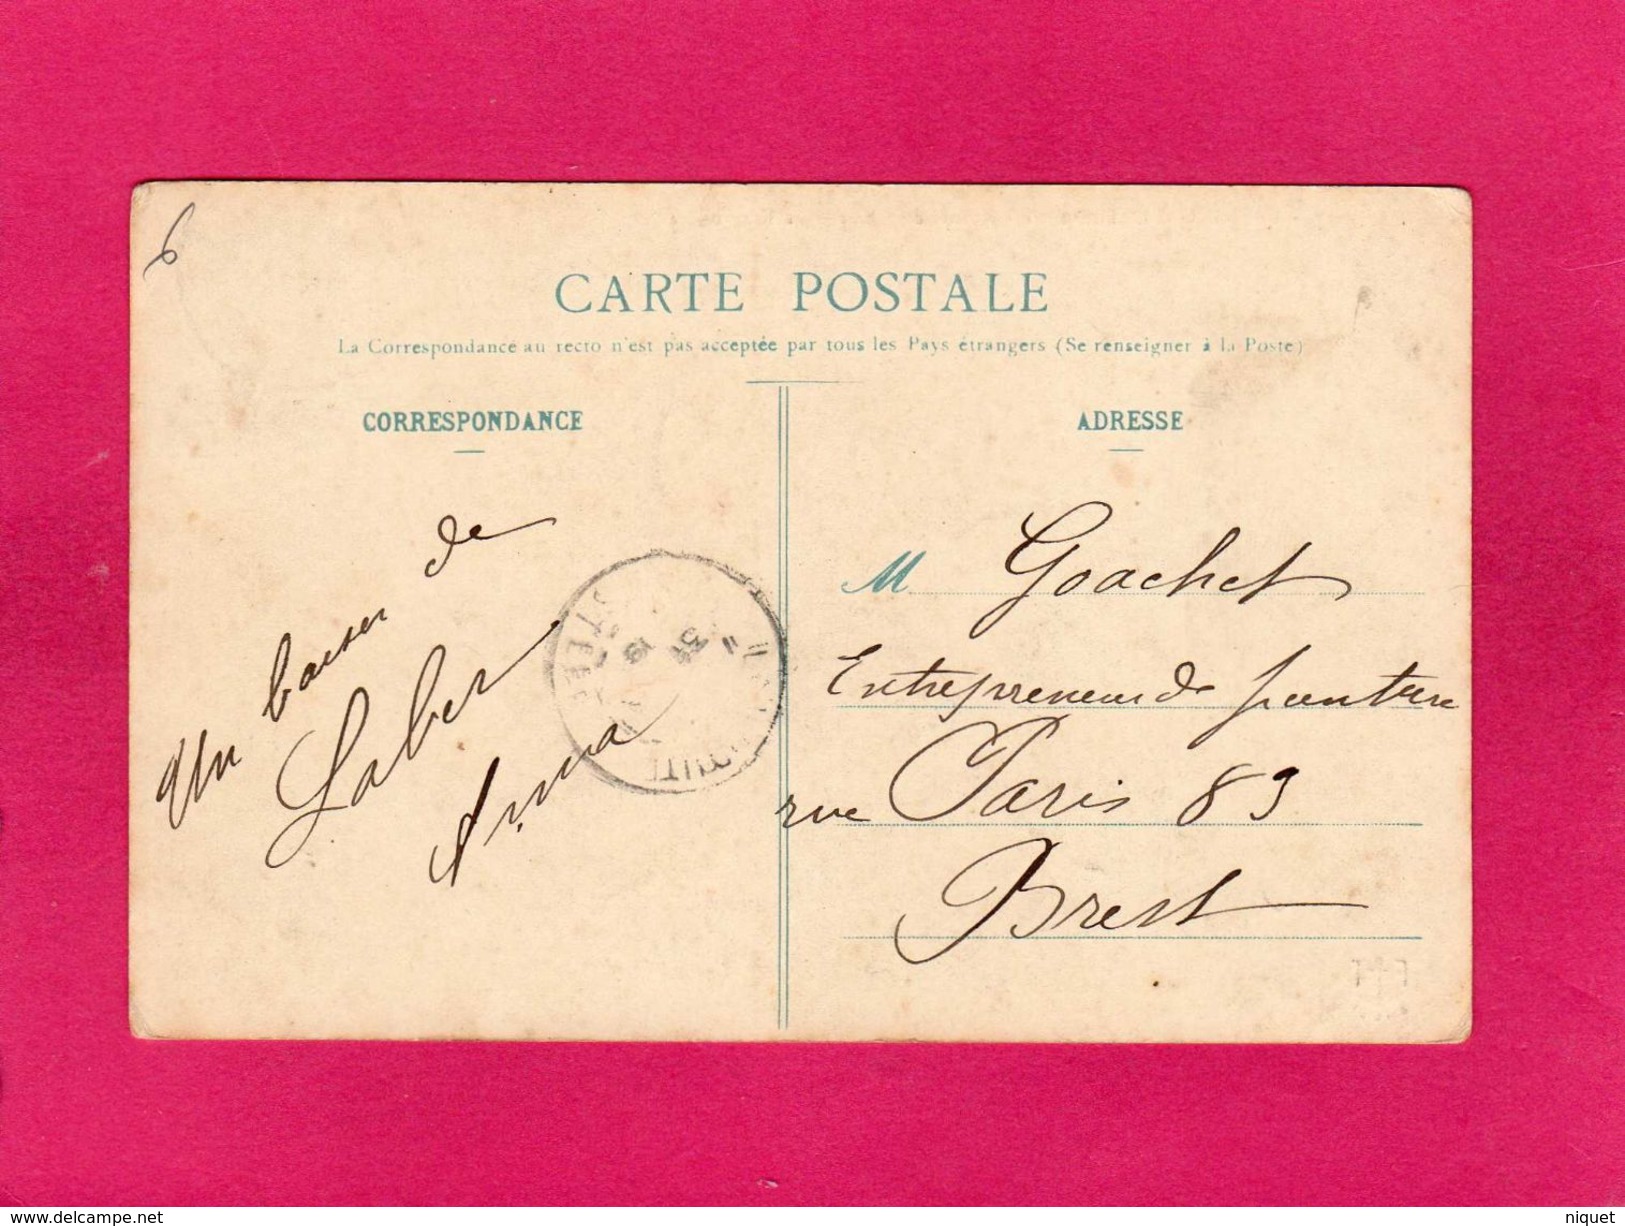 6
CARTE POSTALE
La Correspondance au recto n'est pas acceptée par tous les Pays étrangers (Se renseigner à la Poste)
CORRESPONDANCE
Un baiser de
Laber
Anna
ADRESSE
M Goachet
Entrepreneur de peinture
rue Paris 89
Brest
delcampe.net
niquet